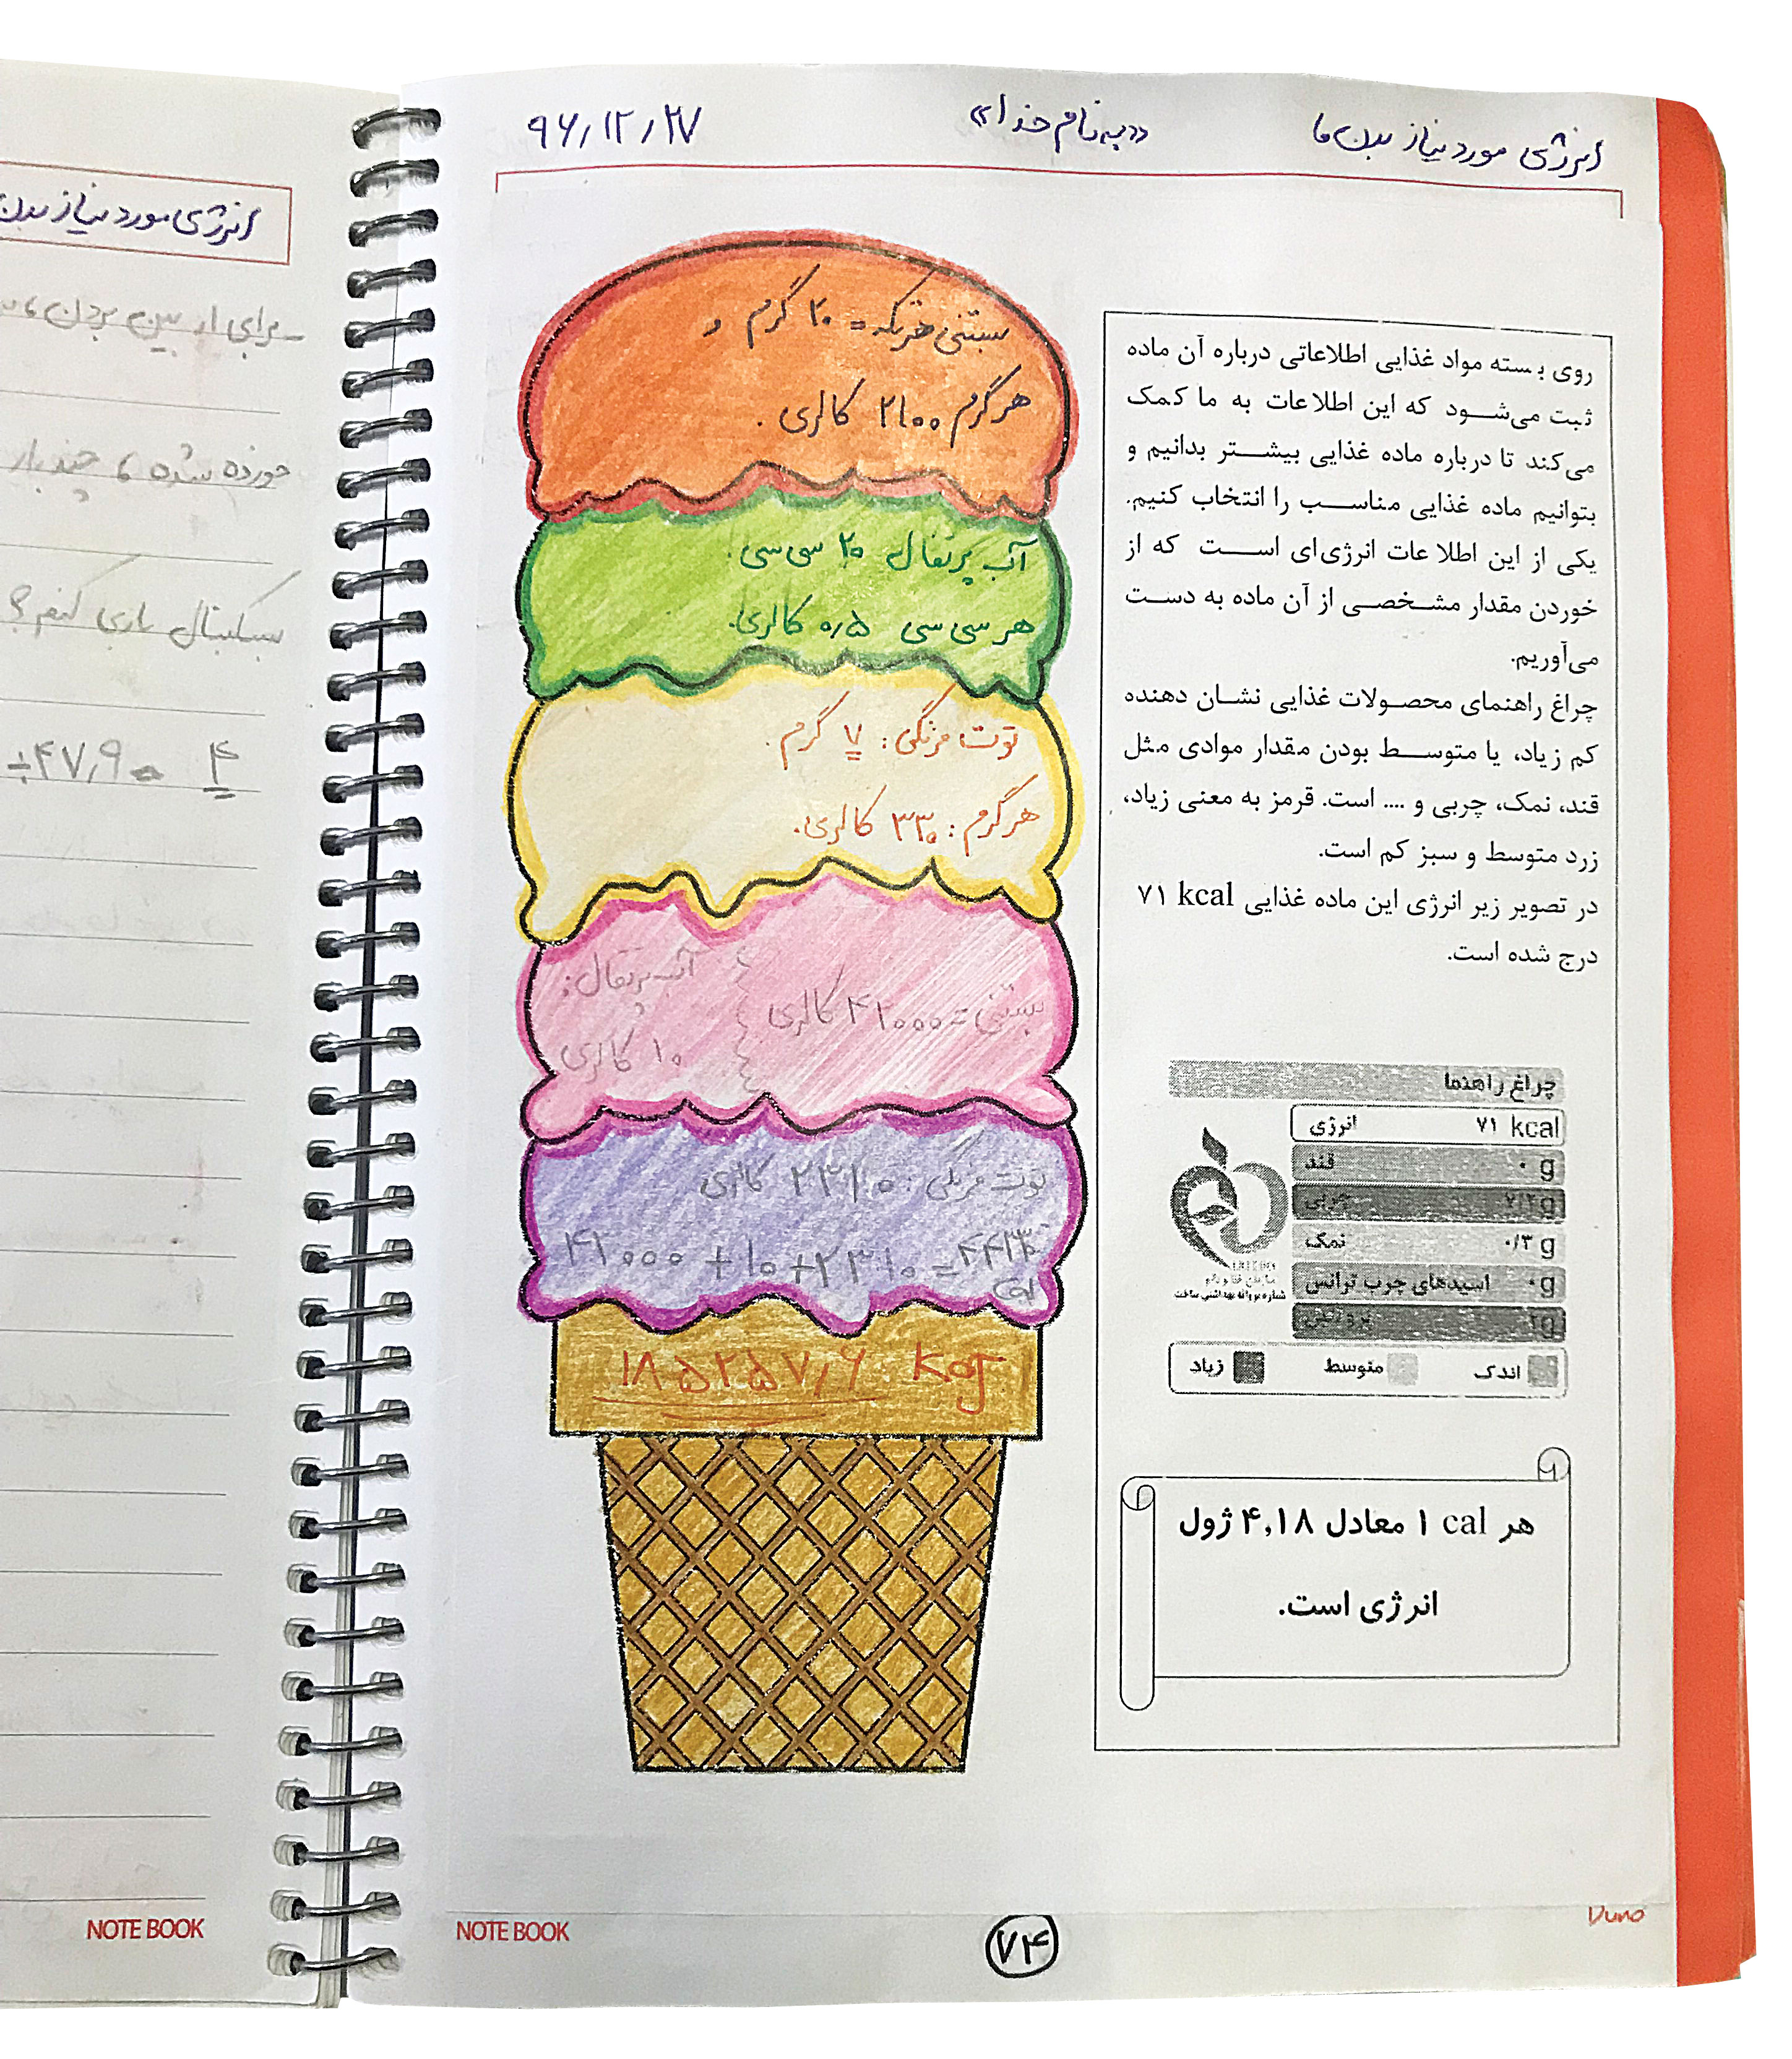 انرژی مورد نیاز بدن ما
«به نام خدا»
۹۶/۱۲/۲۷
هرگرم ۲۱۰۰ کالری.
آب پرتقال ۲۰ سی سی.
هر سی سی ۰/۵ کالری.
گرم.
هرگرم: ۳۳۰ کالری.
آب پرتقال:
۱۰ کالری
بستنی = ۴۲۰۰۰ کالری
۲۳۱۰ کالری
۱۸۵۲۵۷/۶
روی بسته مواد غذایی اطلاعاتی درباره آن ماده
ثبت می‌شود که این اطلاعات به ما کمک
می‌کند تا درباره ماده غذایی بیشتر بدانیم و
بتوانیم ماده غذایی مناسب را انتخاب کنیم.
یکی از این اطلاعات انرژی‌ای است که از
خوردن مقدار مشخصی از آن ماده به دست
می‌آوریم.
چراغ راهنمای محصولات غذایی نشان دهنده
کم زیاد، یا متوسط بودن مقدار موادی مثل
قند، نمک، چربی و .... است. قرمز به معنی زیاد،
زرد متوسط و سبز کم است.
در تصویر زیر انرژی این ماده غذایی ۷۱ kcal
درج شده است.
چراغ راهنما
انرژی ۷۱ kcal
قند ۰ g
نمک ۰/۳ g
اسیدهای چرب ترانس ۰g
اندک متوسط زیاد
هر ۱ cal معادل ۴,۱۸ ژول
انرژی است.
NOTE BOOK
۷۴
Duno
انرژی مورد نیاز بدن
برای از بین بردن
خورده شده
بسکتبال بازی کنم؟
NOTE BOOK